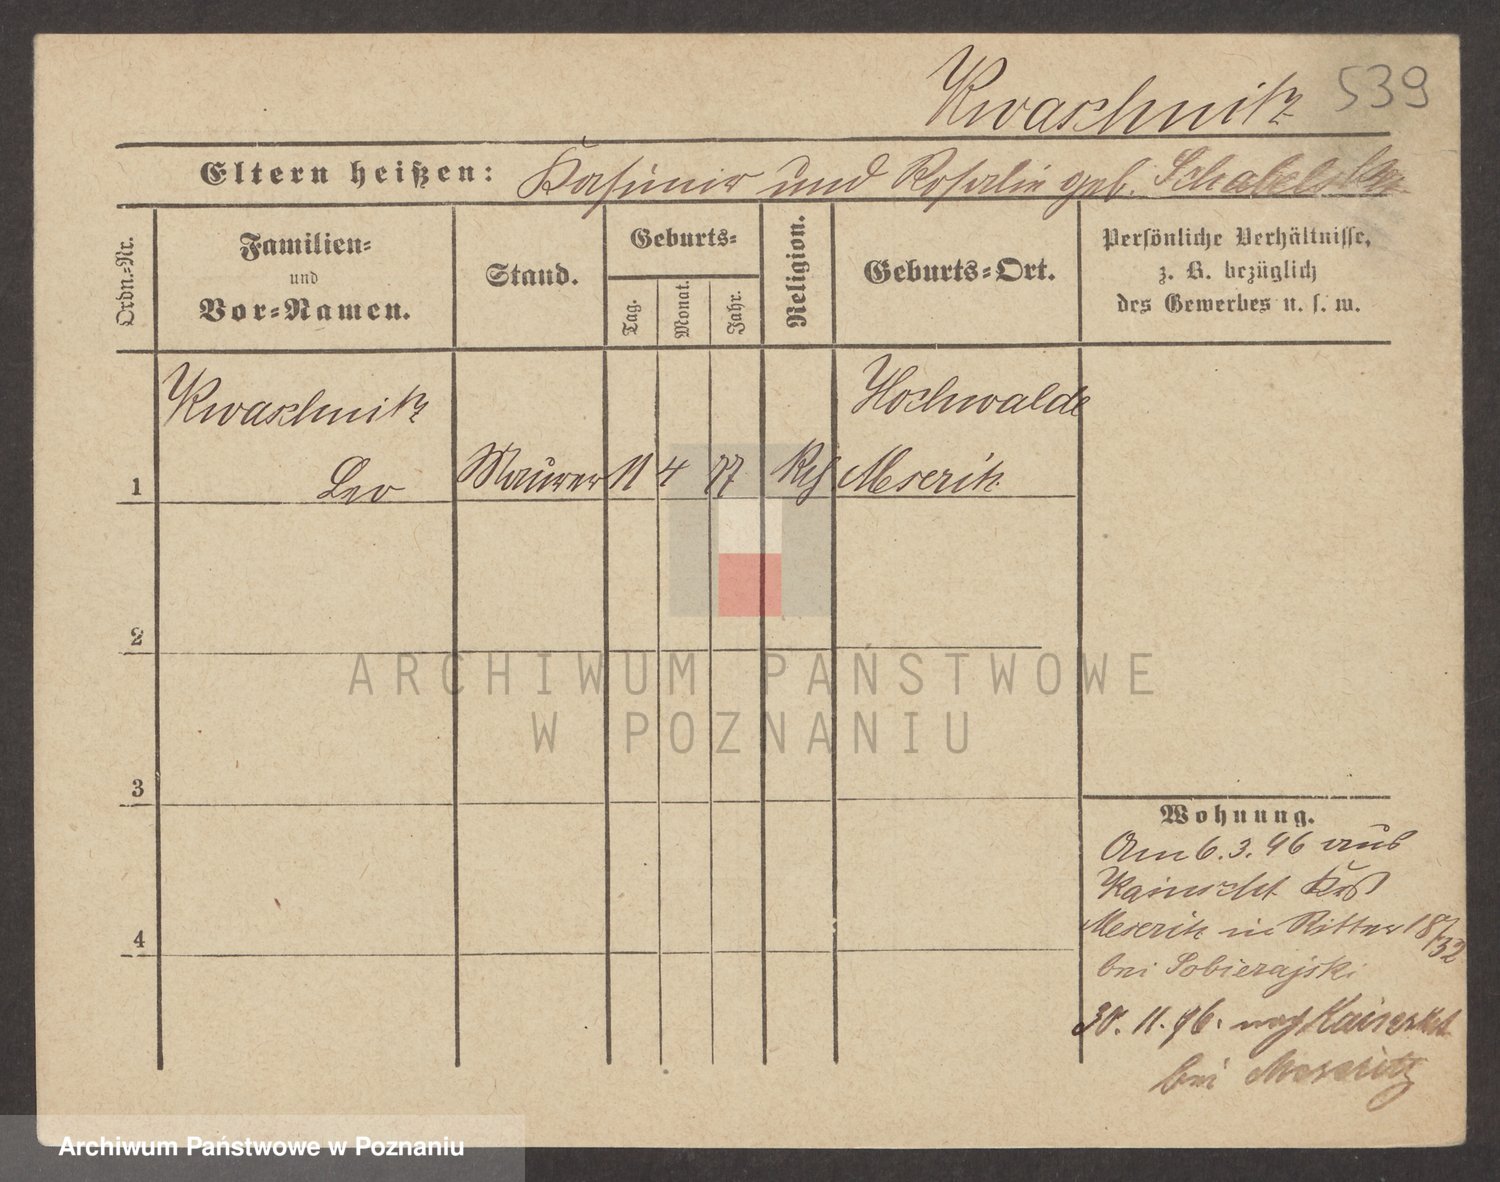 Kwaschnik 539
Eltern heißen: Kasimir und Rosalie geb.
Ordn.=Nr.
Familien=
und
Vor=Namen.
Stand.
Geburts=
Tag.
Monat.
Jahr.
Religion.
Geburts=Ort.
Persönliche Verhältnisse,
z. B. bezüglich
des Gewerbes u. s. w.
Kwaschnik Hochwalde
1 Leo Maurer 11 4 77 Meseritz
2
3
4
Wohnung.
Am 6. 3. 96 aus
Kainscht Krs
Meseritz in Ritter 18/32
bei Sobierajski
30. 11. 96. nach
bei Meseritz
ARCHIWUM PAŃSTWOWE
W POZNANIU
Archiwum Państwowe w Poznaniu